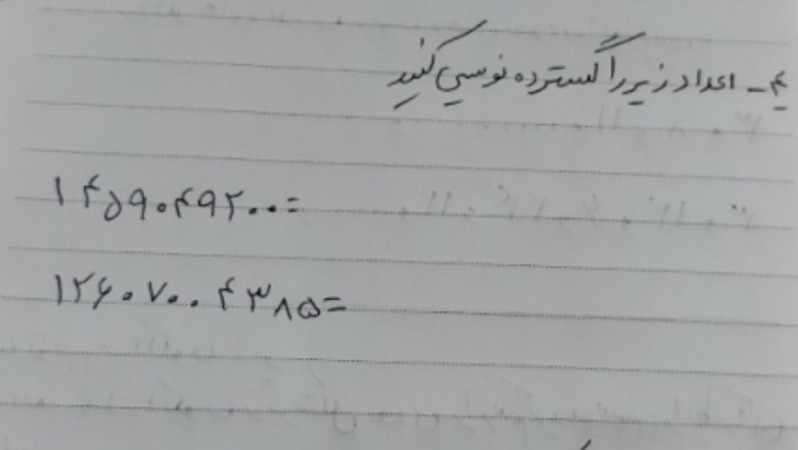 ۴- اعداد زیر را گسترده نویسی کنید
۱۴۵۹۰۴۹۲۰۰=
۱۲۶۰۷۰۰۴۳۸۵=